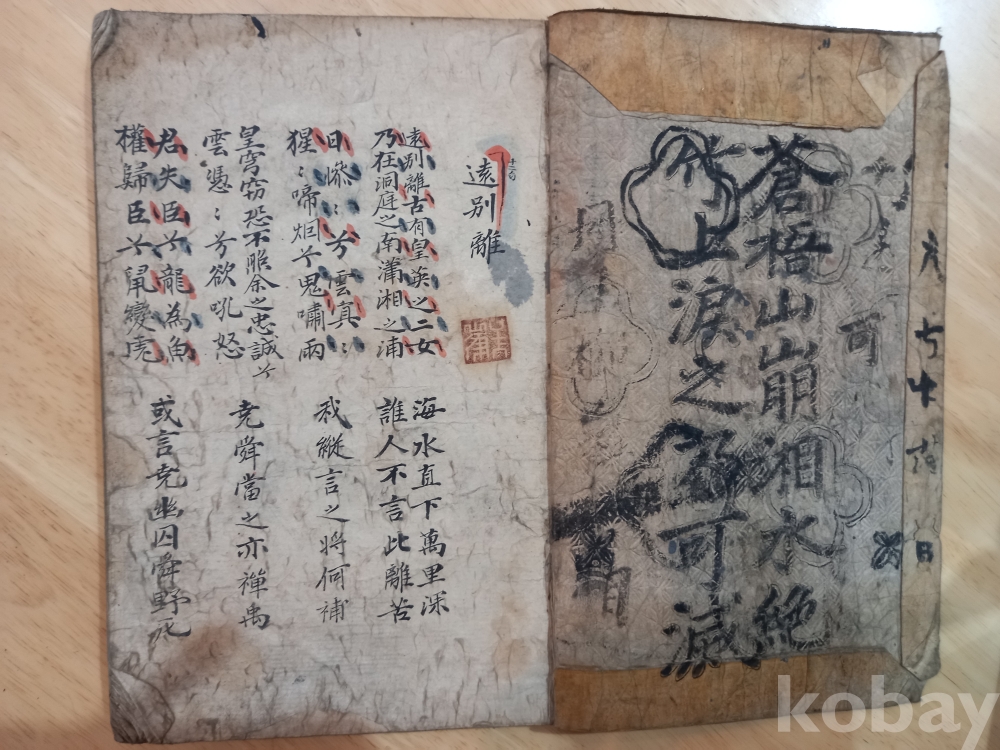 蒼梧山崩相水絶
竹上淚之乃可滅
可
遠別離
遠別離古有皇英之二女
乃在洞庭之南瀟湘之浦
海水直下萬里深
誰人不言此離苦
日慘〻兮雲真〻
猩〻啼烟兮鬼嘯雨
我縱言之將何補
皇穹竊恐不照余之忠誠兮
雲憑〻兮欲吼怒
堯舜當之亦禪禹
君失臣兮龍為魚
權歸臣兮鼠變虎
或言堯幽囚舜野死
kobay